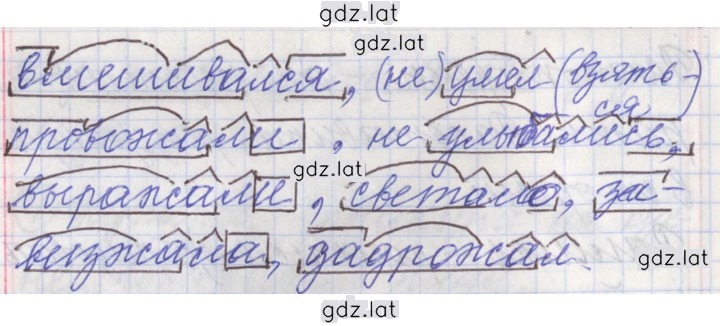 gdz.lat
вмешивался, (не) умел (взять-
ся)
gdz.lat
провожали, не улыбались,
gdz.lat
выражали, светало, за-
визжала, задрожал.
gdz.lat
gdz.lat